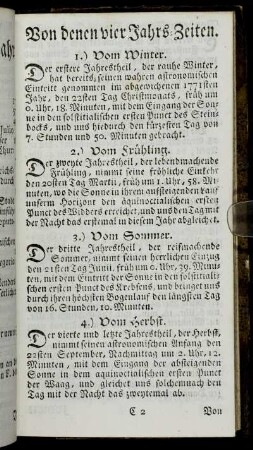 Von denen vier Jahrs-Zeiten.
1.) Vom Winter.
Der erstere Jahrestheil, der rauhe Winter,
hat bereits, seinen wahren astronomischen
Eintritt genommen im abgewichenen 1771sten
Jahr, den 22sten Tag Christmonats, früh um
0. Uhr, 18. Minuten, mit dem Eingang der Son-
ne in den solstitialischen ersten Punct des Stein-
bocks, und uns hiedurch den kürzesten Tag von
7. Stunden und 50. Minuten gebracht.
2.) Vom Frühling.
Der zweyte Jahrestheil, der lebendmachende
Frühling, nimmt seine fröhliche Einkehr
den 20sten Tag Martii, früh um 1. Uhr, 58. Mi-
nuten, wo die Sonne in ihrem aufsteigenden Lauf
unserm Horizont den äquinoctialischen ersten
Punct des Widders erreichet, und uns den Tag mit
der Nacht das erstemal in diesem Jahr abgleichet.
3.) Vom Sommer.
Der dritte Jahrestheil, der reifmachende
Sommer, nimmt seinen herrlichen Einzug
den 21sten Tag Junii, früh um 0. Uhr, 29. Minu-
ten, mit dem Eintritt der Sonne in den solstitiali-
schen ersten Punct des Krebsens, und bringet uns
durch ihren höchsten Bogenlauf den längsten Tag
von 16. Stunden, 10. Minuten.
4.) Vom Herbst.
Der vierte und letzte Jahrestheil, der Herbst,
nimmt seinen astronomischen Anfang den
22sten September, Nachmittag um 2. Uhr, 12.
Minuten, mit dem Eingang der absteigenden
Sonne in dem äquinoctialischen ersten Punct
der Waag, und gleichet uns solchemnach den
Tag mit der Nacht das zweytemal ab.
C 2 Von